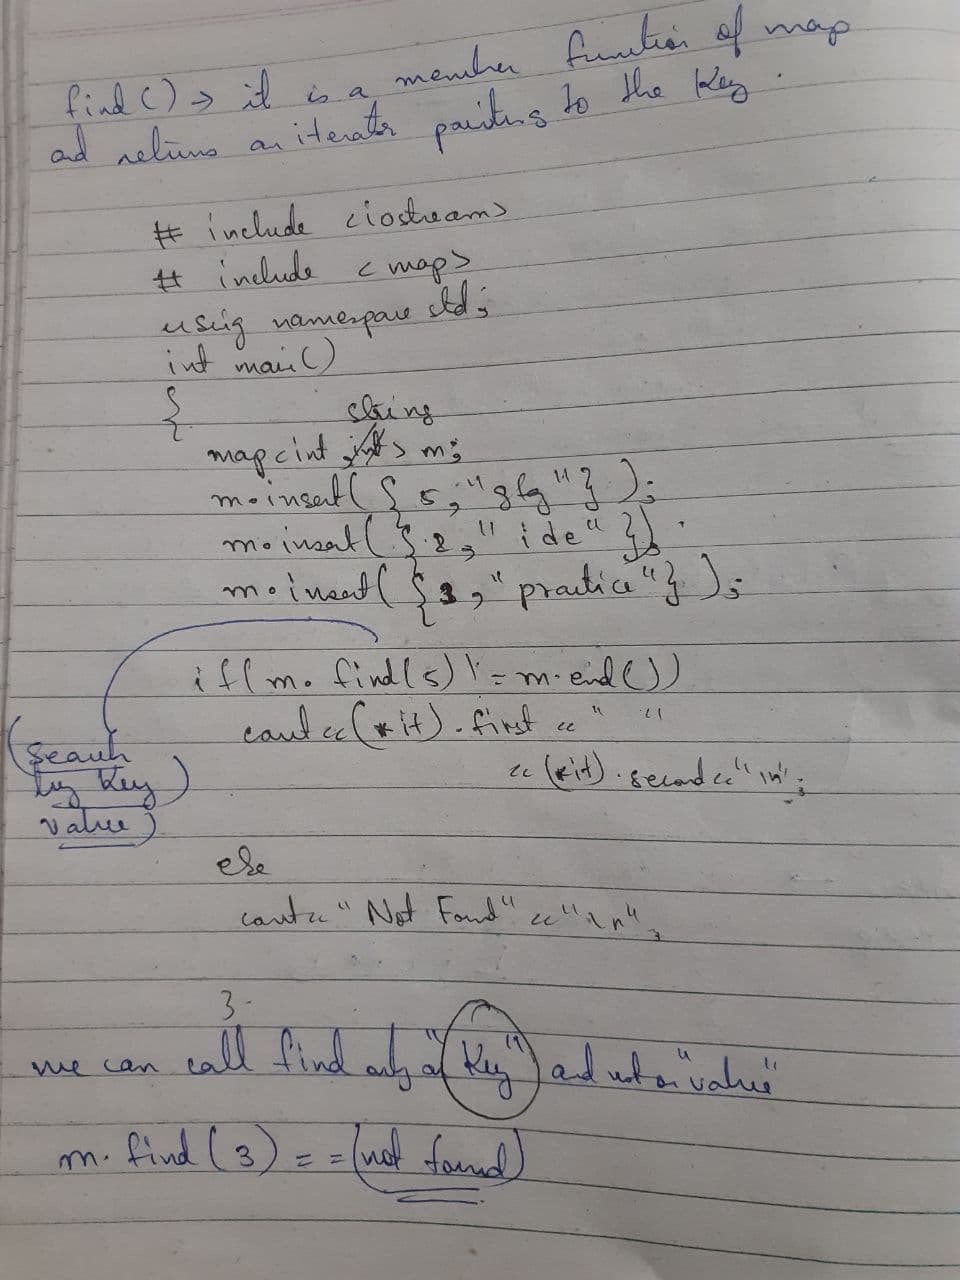 find() → it is a member function of map
and returns an iterator pointing to the Key.
# include <iostream>
# include <map>
using namespace std;
int main()
{
string
map<int int> m;
m.insert({5,"gfg"});
m.insert({2,"ide"});
m.insert({3,"practice"});
if(m.find(5) != m.end())
cout<<(*it).first << " "
<<(*it).second<<"\n";
(Search
by Key
value)
else
cout<<"Not Found"<<"\n";
}
we can call find only on "Key" and not on "value"
m.find(3) == (not found)